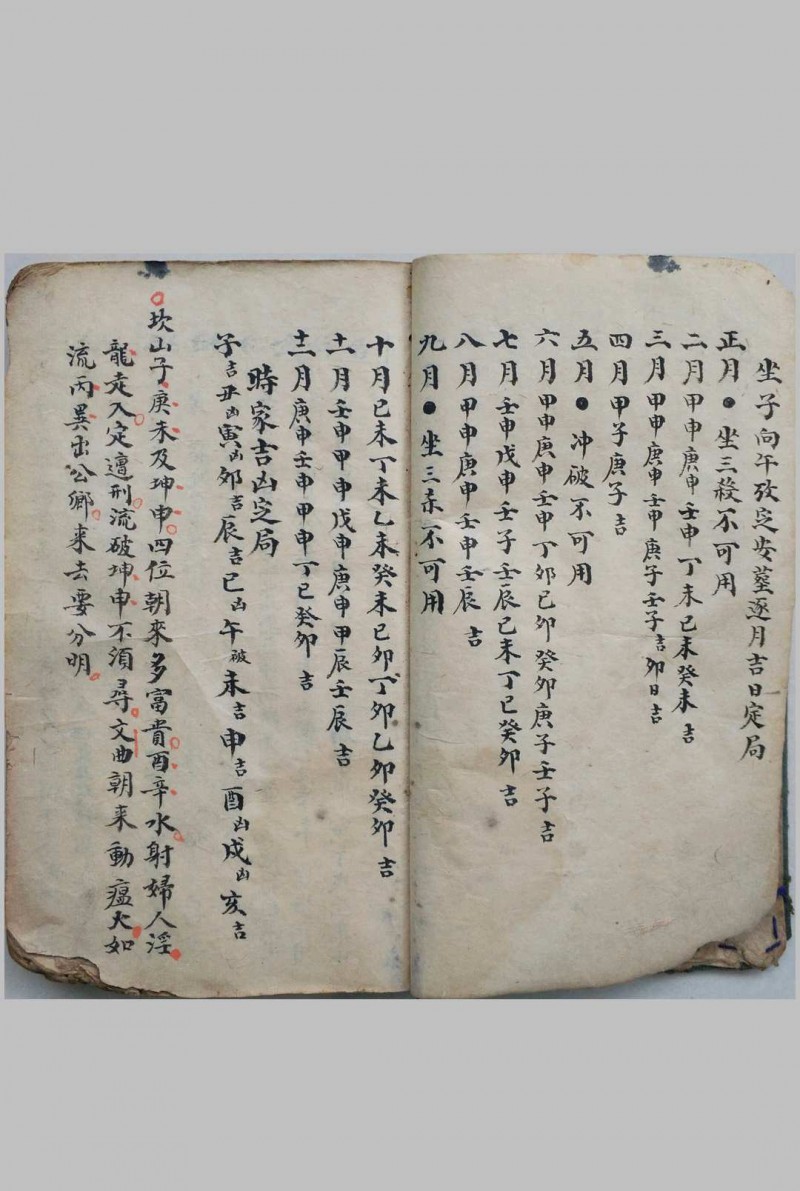 坐子向午攷定安葬逐月吉日定局
正月●坐三殺不可用
二月甲申庚申壬申丁未己未癸未吉
三月甲申庚申壬申庚子壬子吉卯日吉
四月甲子庚子吉
五月●冲破不可用
六月甲申庚申壬申丁卯己卯癸卯庚子壬子吉
七月壬申戊申壬子壬辰己未丁巳癸卯吉
八月甲申庚申壬申壬辰吉
九月●坐三杀不可用
十月己未丁未乙未癸未己卯丁卯乙卯癸卯吉
十一月壬申甲申戊申庚申甲辰壬辰吉
十二月庚申壬申甲申丁巳癸卯吉
時家吉凶定局
子吉丑凶寅凶卯吉辰吉巳凶午破未吉申吉酉凶戌凶亥吉
坎山子庚未及坤申四位朝來多富貴酉辛水射婦人淫
龍走入定遭刑流破坤申不須尋文曲朝来動瘟火如
流丙異出公鄉来去要分明